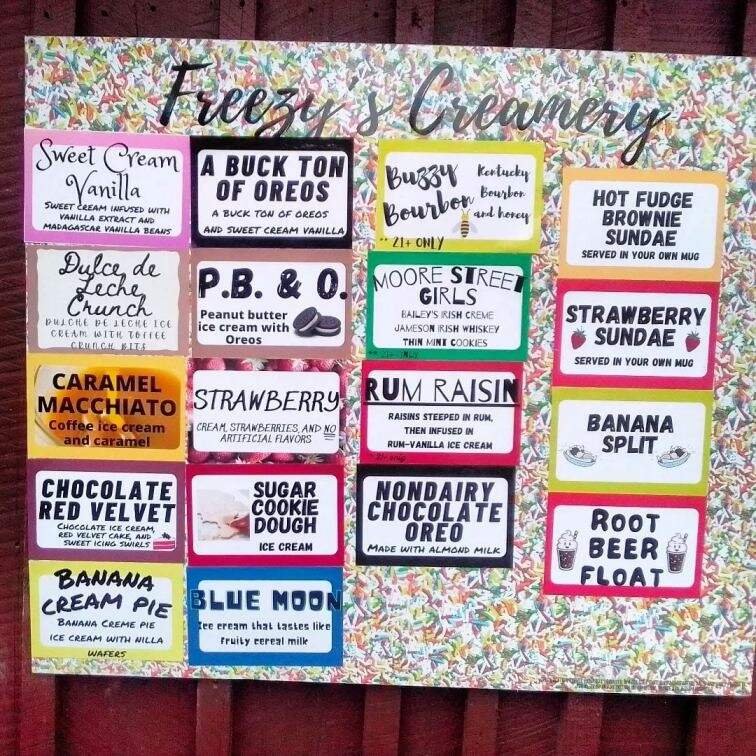 Freezy's Creamery
Sweet Cream
Vanilla
SWEET CREAM INFUSED WITH
VANILLA EXTRACT AND
MADAGASCAR VANILLA BEANS
Dulce de
Leche
Crunch
DULCHE DE LECHE ICE
CREAM WITH TOFFEE
CRUNCH BITS
CARAMEL
MACCHIATO
Coffee ice cream
and caramel
CHOCOLATE
RED VELVET
CHOCOLATE ICE CREAM,
RED VELVET CAKE, AND
SWEET ICING SWIRLS
BANANA
CREAM PIE
BANANA CREME PIE
ICE CREAM WITH NILLA
WAFERS
A BUCK TON
OF OREOS
A BUCK TON OF OREOS
AND SWEET CREAM VANILLA
P.B. & O.
Peanut butter
ice cream with
Oreos
STRAWBERRY
CREAM, STRAWBERRIES, AND NO
ARTIFICIAL FLAVORS
SUGAR
COOKIE
DOUGH
ICE CREAM
BLUE MOON
Ice cream that tastes like
fruity cereal milk
Buzzy
Bourbon
Kentucky
Bourbon
and honey
** 21+ ONLY
MOORE STREET
GIRLS
BAILEY'S IRISH CREME
JAMESON IRISH WHISKEY
THIN MINT COOKIES
** 21+ ONLY
RUM RAISIN
RAISINS STEEPED IN RUM,
THEN INFUSED IN
RUM-VANILLA ICE CREAM
** 21+ only
NONDAIRY
CHOCOLATE
OREO
MADE WITH ALMOND MILK
HOT FUDGE
BROWNIE
SUNDAE
SERVED IN YOUR OWN MUG
STRAWBERRY
SUNDAE
SERVED IN YOUR OWN MUG
BANANA
SPLIT
ROOT
BEER
FLOAT